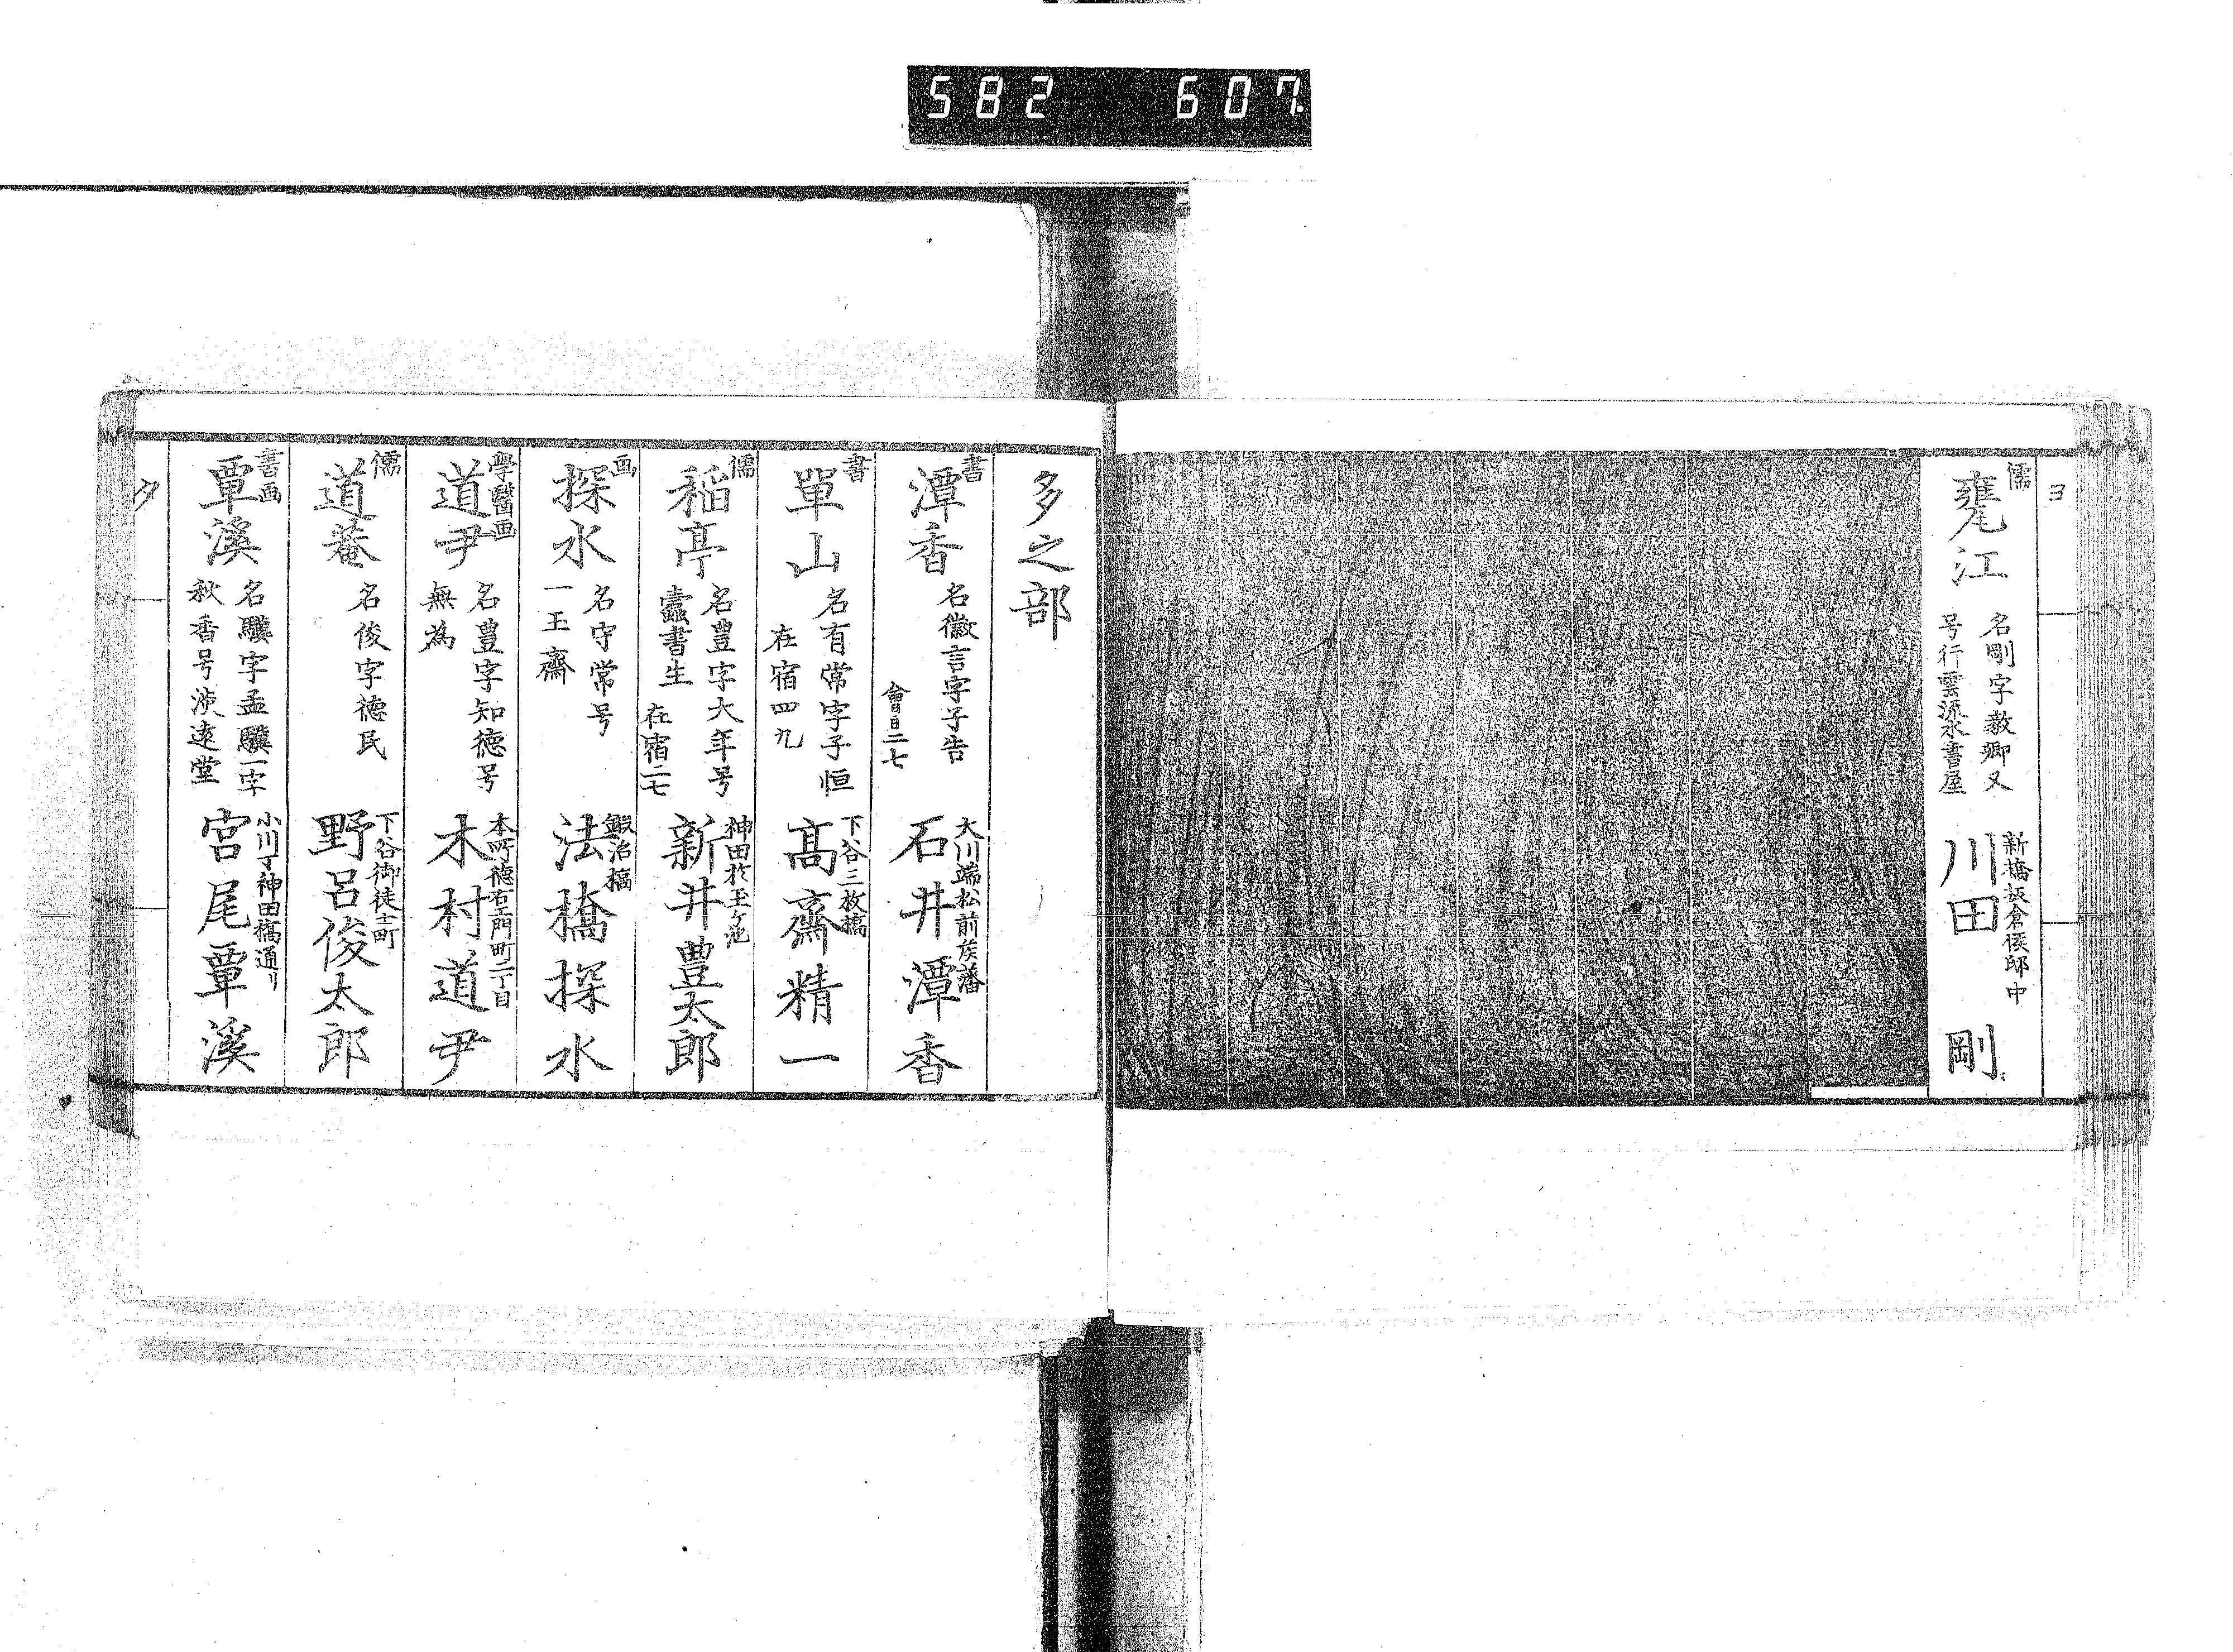 582 607
ヨ
儒
甕江
名剛字毅卿又
号行雲流水書屋
新橋板倉侯邸中
川田剛
多之部
書
潭香
名徽言字子告
會日二七
大川端松前侯藩
石井潭香
書
單山
名有常字子恒
在宿四九
下谷三枚橋
髙齋精一
儒
稲亭
名豊字大年号
蠧書生
在宿二七
神田於玉ケ池
新井豊太郎
画
探水
名守常号
一玉齋
鍛冶橋
法橋探水
學醫画
道尹
名豊字知徳号
無為
本町徳右エ門町二丁目
木村道尹
儒
道菴
名俊字徳民
下谷御徒士町
野呂俊太郎
書画
覃溪
名驥字孟驥一字
秋香号淡遠堂
小川丁神田橋通リ
宮尾覃溪
タ